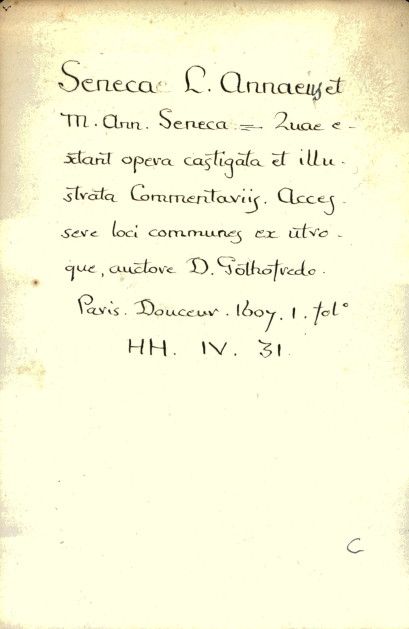 Seneca L. Annaeus et
M. Ann. Seneca = Quae e-
xtant opera castigata et illu-
strata Commentariis. Acces-
sere loci communes ex utro-
que, auctore D. Gothofredo.
Paris. Douceur. 1607. 1. fol°
HH. IV. 31
C